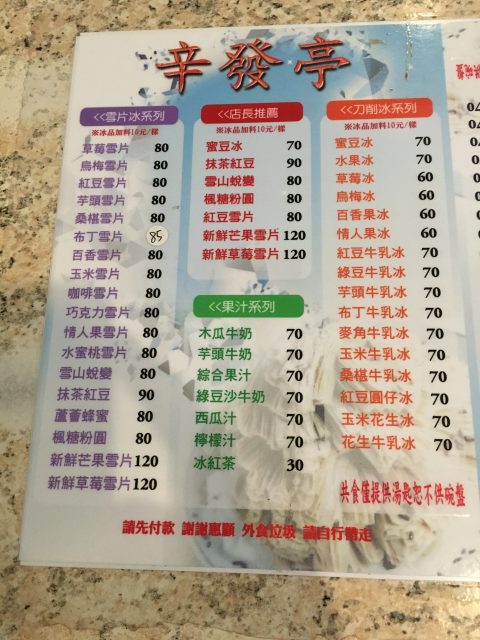 辛發亭
<<雪片冰系列
※冰品加料10元/樣
草莓雪片 80
烏梅雪片 80
紅豆雪片 80
芋頭雪片 80
桑椹雪片 80
布丁雪片 85
百香雪片 80
玉米雪片 80
咖啡雪片 80
巧克力雪片 80
情人果雪片 80
水蜜桃雪片 80
雪山蛻變 80
抹茶紅豆 90
蘆薈蜂蜜 80
楓糖粉圓 80
新鮮芒果雪片 120
新鮮草莓雪片 120
<<店長推薦
※冰品加料10元/樣
蜜豆冰 70
抹茶紅豆 90
雪山蛻變 80
楓糖粉圓 80
紅豆雪片 80
新鮮芒果雪片 120
新鮮草莓雪片 120
<<果汁系列
木瓜牛奶 70
芋頭牛奶 70
綜合果汁 70
綠豆沙牛奶 70
西瓜汁 70
檸檬汁 70
冰紅茶 30
<<刀削冰系列
※冰品加料10元/樣
蜜豆冰 70
水果冰 70
草莓冰 60
烏梅冰 60
百香果冰 60
情人果冰 60
紅豆牛乳冰 70
綠豆牛乳冰 70
芋頭牛乳冰 70
布丁牛乳冰 70
麥角牛乳冰 70
玉米牛乳冰 70
桑椹牛乳冰 70
紅豆圓仔冰 70
玉米花生冰 70
花生牛乳冰 70
共食僅提供湯匙恕不供碗盤
請先付款 謝謝惠顧 外食垃圾 請自行帶走